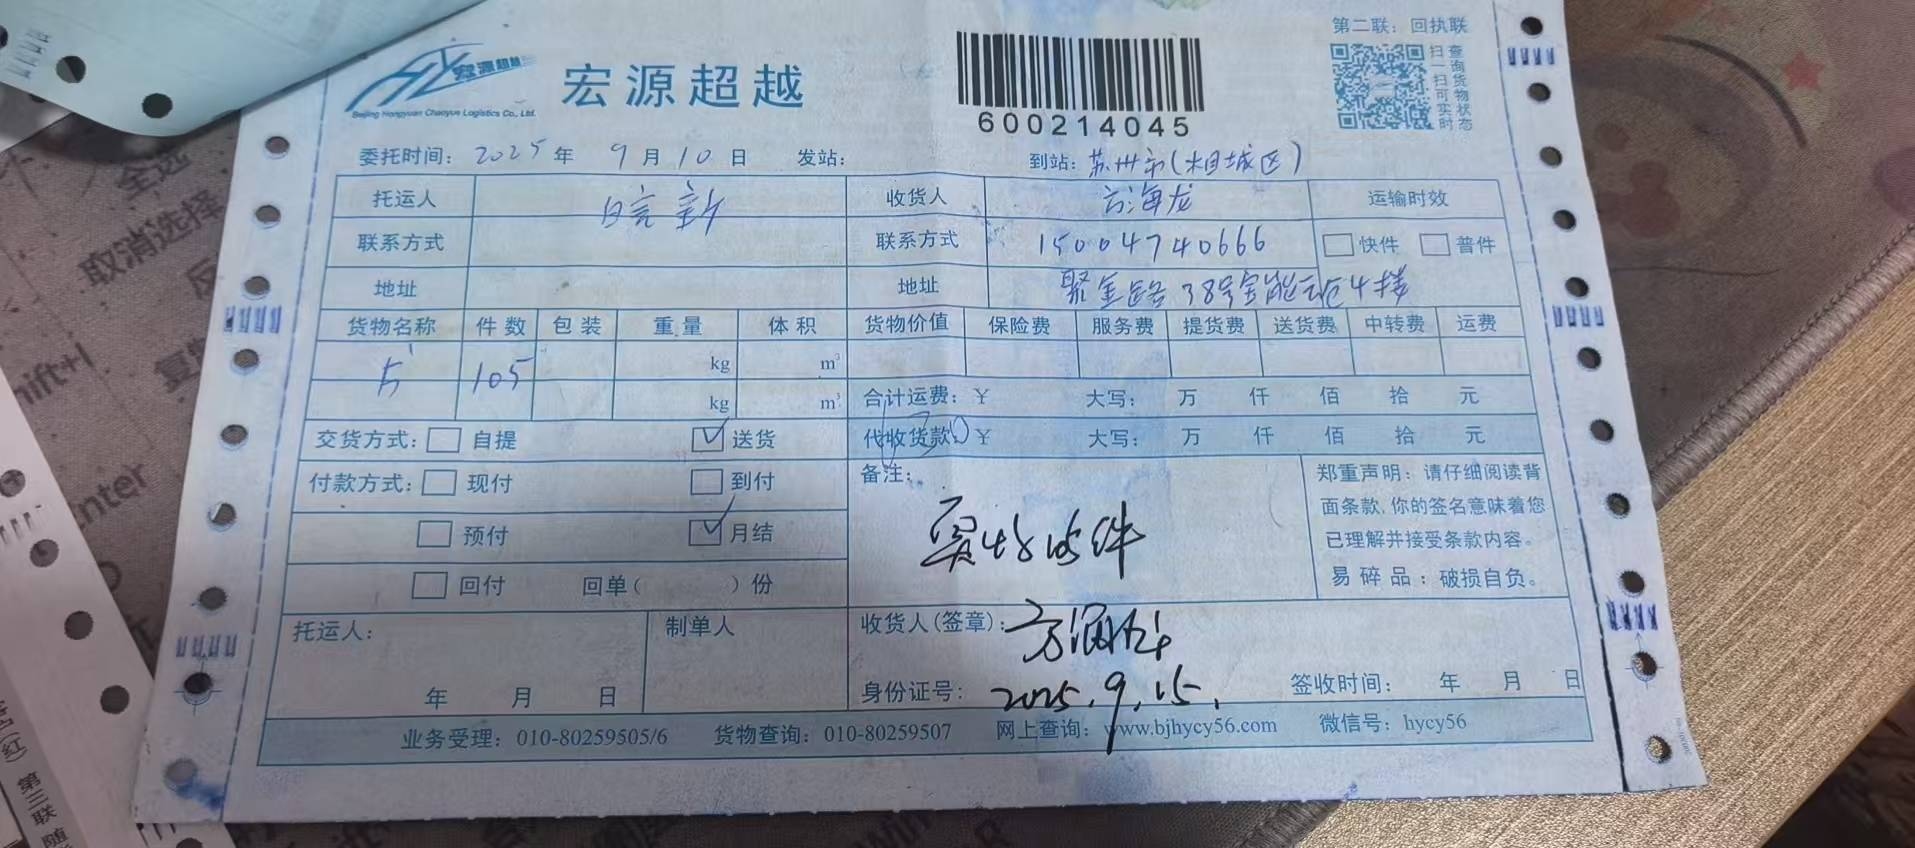 第二联：回执联
宏源超越
Beijing Hongyuan Chaoyue Logistics Co., Ltd.
宏源超越
600214045
扫一扫可实时
查询货物状态
委托时间：2025年 9月10日 发站： 到站：苏州市(相城区)
托运人 皖新 收货人 方海龙 运输时效
联系方式 联系方式 15004740666 快件 普件
地址 地址 聚金路38号金能云仓4楼
货物名称 件数 包装 重量 体积 货物价值 保险费 服务费 提货费 送货费 中转费 运费
书 105 kg m³
kg m³
合计运费：￥ 大写： 万 仟 佰 拾 元
交货方式： 自提 ✓送货 代收货款 ￥ 大写： 万 仟 佰 拾 元
付款方式： 现付 到付 备注：
预付 ✓月结
回付 回单（ ）份
实收 件
郑重声明：请仔细阅读背
面条款，你的签名意味着您
已理解并接受条款内容。
易碎品：破损自负。
托运人： 制单人 收货人(签章)：方海龙
年 月 日 身份证号： 2025.9.15. 签收时间： 年 月 日
业务受理：010-80259505/6 货物查询：010-80259507 网上查询：www.bjhycy56.com 微信号：hycy56
全选
取消选择
hift+I
nter
第三联